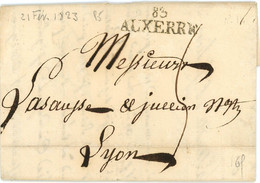 21 Fev. 1823 85
83
AUXERRE
Messieurs
Lasausse & juccien Nég.
Lyon